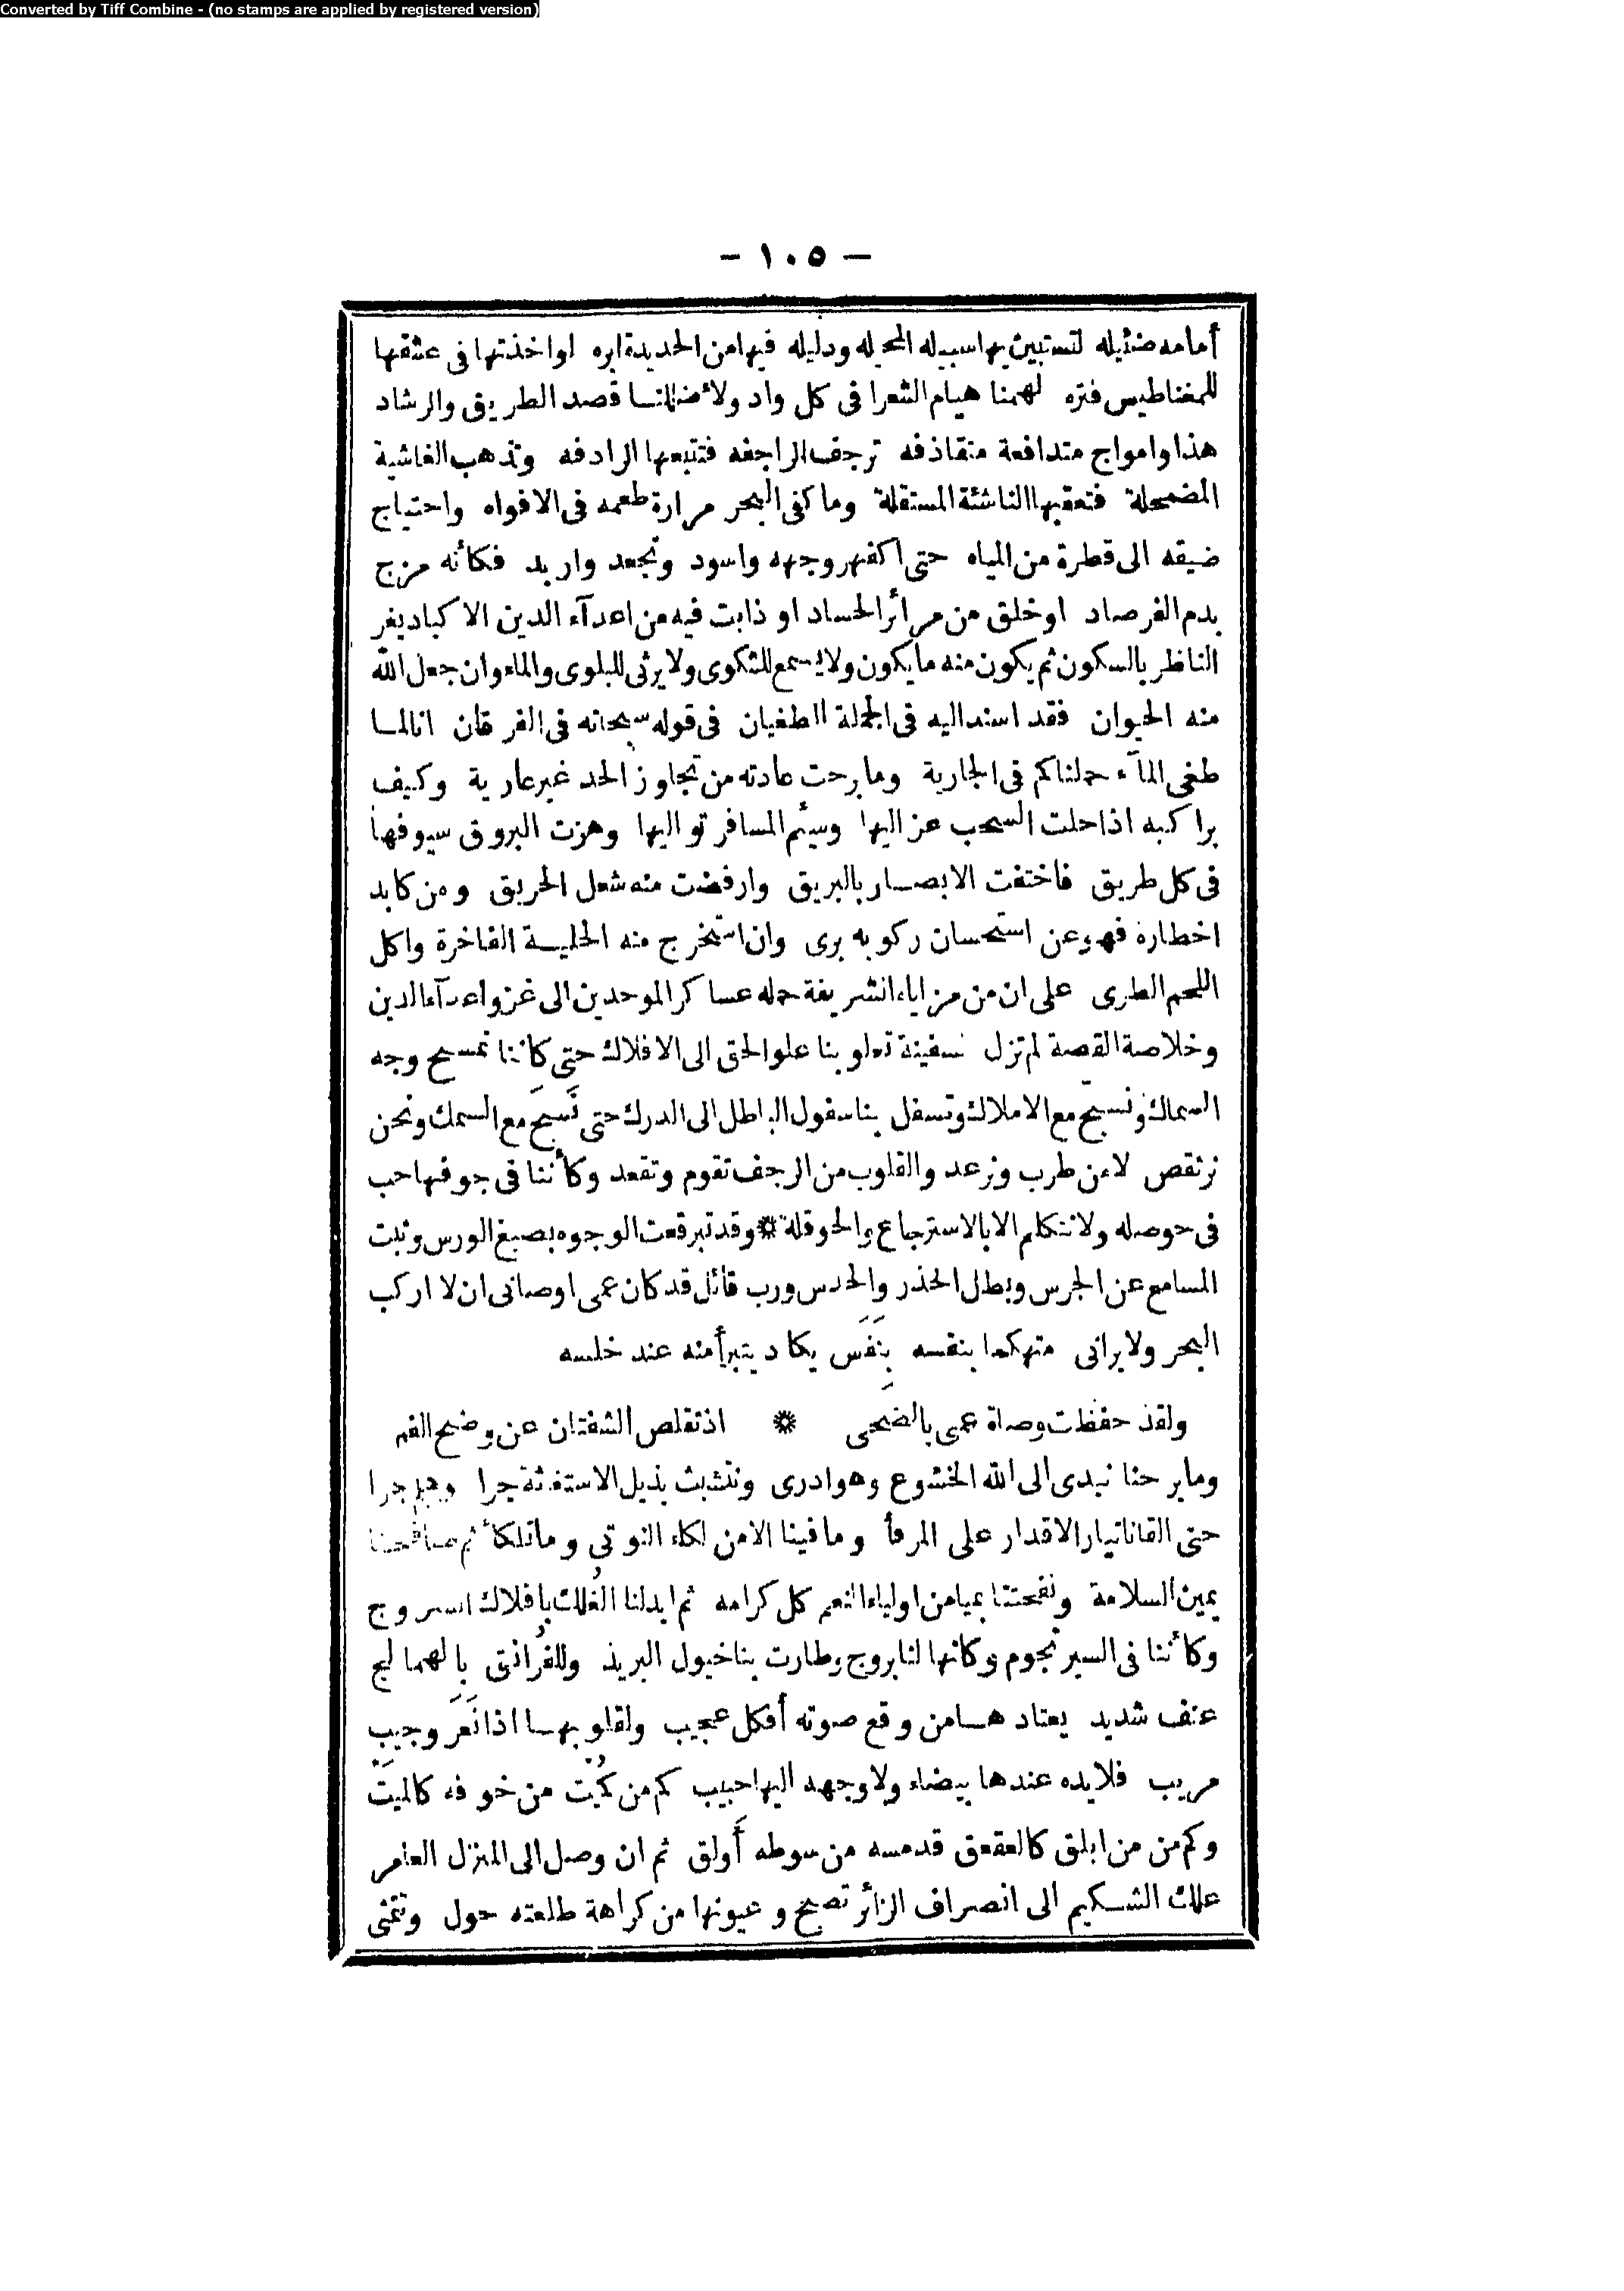 Converted by Tiff Combine - (no stamps are applied by registered version)
— ١٠٥ —
أمامه ضئيله لتستبين بها سبيله المحيله ودليله فيها من الحديدة ابره لواخذتها فى عشقها
للمغناطيس فتره لهمنا هيام الشعرا فى كل واد ولأضللنا قصد الطريق والرشاد
هذا وامواج متدافعة متقاذفه ترجف الراجفه فتتبعها الرادفه وتذهب الغاشية
المضمحلة فتعقبها الناشئة المستقلة وما كفى البحر مرارة طعمه فى الافواه واحتياج
ضيقه الى قطرة من المياه حتى اكفهر وجهه واسود وتجعد واربد فكأنه مزج
بدم الفرصاد اوخلق من مرائر الحساد او ذابت فيه من اعدآء الدين الاكباد يغر
الناظر بالسكون ثم يكون منه ما يكون ولا يسمع للشكوى ولا يرثى للبلوى والماء وان جعل الله
منه الحيوان فقد اسند اليه فى الجملة الطغيان فى قوله سبحانه فى الفرقان انا لما
طغى المآء حملناكم فى الجارية وما برحت عادته من تجاوز الحد غير عارية وكيف
براكبه اذا حلت السحب عزاليها وسئم المسافر تواليها وهزت البروق سيوفها
فى كل طريق فاختفت الابصار بالبريق وارفضت منه شعل الحريق ومن كابد
اخطاره فهو عن استحسان ركوبه برى وان استخرج منه الحلية الفاخرة واكل
اللحم الطرى على ان من مزاياه الشريفة حمله عساكر الموحدين الى غزو اعدآء الدين
وخلاصة القصة لم تزل سفينة تعلو بنا علو الحق الى الافلاك حتى كأننا نمسح وجه
السماك ونسبح مع الاملاك وتسفل بنا سفول الباطل الى الدرك حتى نَسبَح مع السمك ونحن
نرتقص لا من طرب ونرعد والقلوب من الرجف تقوم وتقعد وكأننا فى جوفها حب
فى حوصله ولا نتكلم الا بالاسترجاع والحوقلة * وقد تبرقعت الوجوه بصبغ الورس ونبت
المسامع عن الجرس وبطل الحذر والحدس ورب قائل قد كان عمى اوصانى ان لا اركب
البحر ولا يرانى متهكما بنفسه بِنَفَس يكاد يتبرأ منه عند خلسه
ولقد حفظت وصاة عمى بالضحى * اذ تقلص الشفتان عن وضح الفم
وما برحنا نبدى الى الله الخشوع وهو ادرى ونتشبث بذيل الاستغاثة جرا وهلم جرا
حتى القانا تيار الاقدار على المرفأ وما فينا الا من لكاء النوتى وما تلكأ ثم صافحتنا
يمين السلامة ونفحتنا بميامن اولياء النعم كل كرامه ثم ابدلنا الفُلك بافلاك السروج
وكأننا فى السير نجوم وكانها لنا بروج وطارت بنا خيول البريد وللفُرانق بالهماليج
عنف شديد يعتاد هامن وقع صوته أفكل عجيب ولقلوبها اذا نَعَر وجيب
مريب فلا يده عندها بيضاء ولا وجهه اليها حبيب كم من كُمَيْت من خوفه كالميت
وكم من من ابلق كالعقعق قد مسه من سوطه أَولق ثم ان وصل الى المنزل العامر
علك الشكيم الى انصراف الزائر تصبح وعيونها من كراهة طلعته حول وتمنى